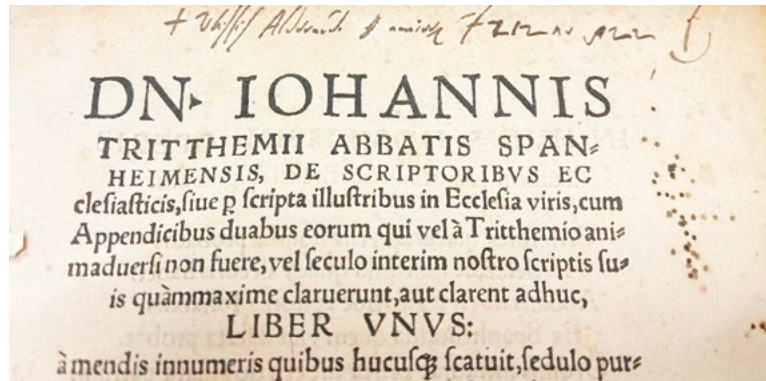 DN. IOHANNIS
TRITTHEMII ABBATIS SPAN⸗
HEIMENSIS, DE SCRIPTORIBVS EC
clesiasticis,siue ꝑ scripta illustribus in Ecclesia viris,cum
Appendicibus duabus eorum qui vel à Tritthemio ani⸗
maduersi non fuere,vel seculo interim nostro scriptis su⸗
is quàmmaxime claruerunt,aut clarent adhuc,
LIBER VNVS:
à mendis innumeris quibus hucusqꝫ scatuit,sedulo pur⸗